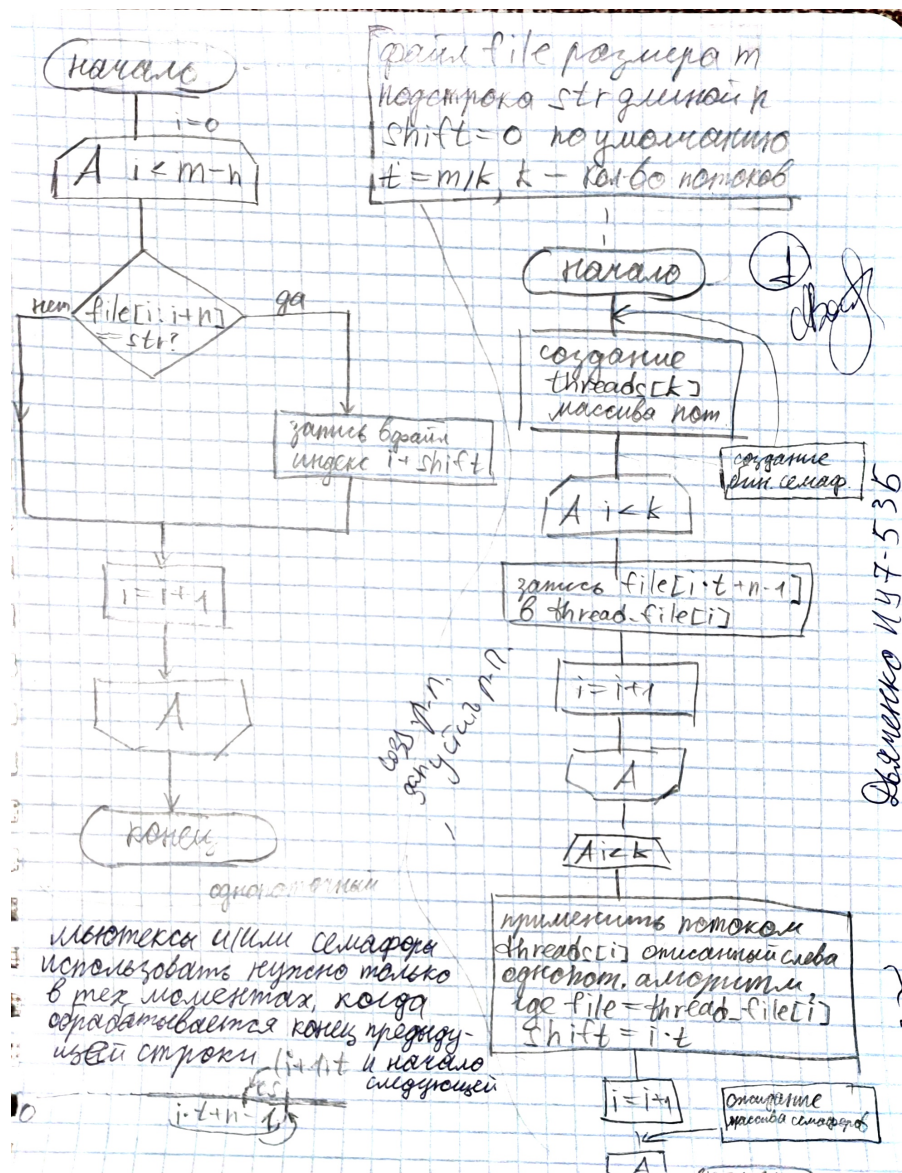 начало
i=0
А i < m-n
file[i:i+n]
== str?
нет
да
запись в файл
индекс i+shift
i=i+1
А
конец
однопоточный
мьютексы и/или семафоры
использовать нужно только
в тех моментах, когда
обрабатывается конец преды-
щей строки
и начало
следующей
(i+1)t
0
i·t+n-1
файл file размера m
подстрока str длиной n
shift=0 по умолчанию
t=m/k, k – кол-во потоков
начало
1
создание
threads[k]
массива пот.
создание
бин. семаф.
А i<k
запись file[i·t+n-1]
в thread_file[i]
i=i+1
А
А i<k
применить потоком
threads[i] описанный слева
однопот. алгоритм
где file=thread_file[i]
shift=i·t
i=i+1
ожидание
массива семафоров
А
ИУ7-53Б